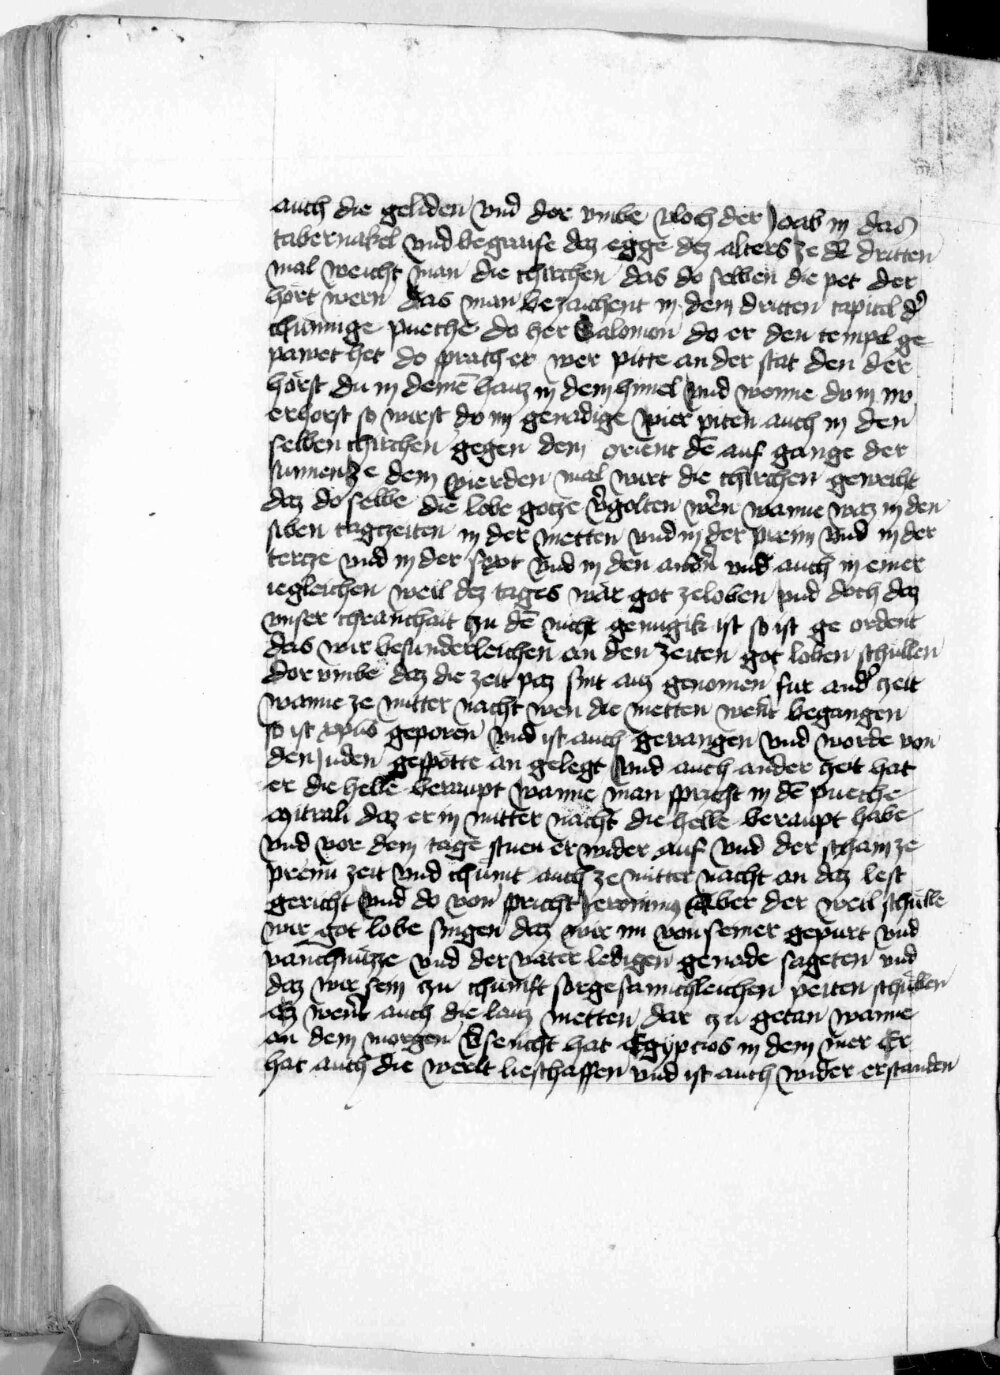 auch die geliden vnd dor vmbe vloch der Joab in das
tabernakel vnd begraife daz egge dez alters ze dē dritten
mal weicht man die chirchen das do selben die pet der
hört wern das man bezaichent in dem dritten capitel dʼ
chünnige pueche do her Salomon do er den tempel ge
pawet het do sprach er wer pitte an der stat den der
hörst du in deinē hauz in dem himel vnd wenne du in nv
erhorst so wirst do im genadige wier piten auch in den
selben chirchen gegen dem orient dē auf gange der
sunnen Ze dem vierden mal wirt die chirchen geweiht
daz do selbe die lobe gotze vʼgolten wērn wanne waz in den
siben tagczeiten in der metten vnd in der preim vnd in der
tercze vnd in der sext vnd in den andʼn vnd auch in einer
iegleichen weil dez tages wār got zeloben vnd doch daz
vnser chranchait czu dē nicht genugik ist so ist ge ordent
das wir besunderleichen an den zeiten got loben schüllen
dor vmbe daz die zeit paz sint auz genomen fur andʼ czeit
wanne ze mitter nacht wen die metten wert begangen
so ist xp̄us geporen vnd ist auch gevangen vnd worde von
den Juden gespötte an gelegt vnd auch ander zeit hat
er die helle beraupt wanne man spricht in dē pueche
Mitrali daz er in mitter nacht die helle beraupt habe
vnd vor dem tage stuen er wider auf vnd der scham ze
preim zeit vnd chümt auch ze mitter nacht an daz lest
gericht vnd do von spricht Jeronimus Aber der weil schülle
wir got lobe singen daz wir im von seiner gepurt vnd
vanchnüzze vnd der vater ledigen genode sageten vnd
daz wir sein czu chunft sorgesamchleichen peiten schüllen
Ez werdʼt auch die lauz metten dar czu getan wanne
an dem morgen vʼsencht hat Egypcios in dem mer Er
hat auch die werlt beschaffen vnd ist auch wider erstanden